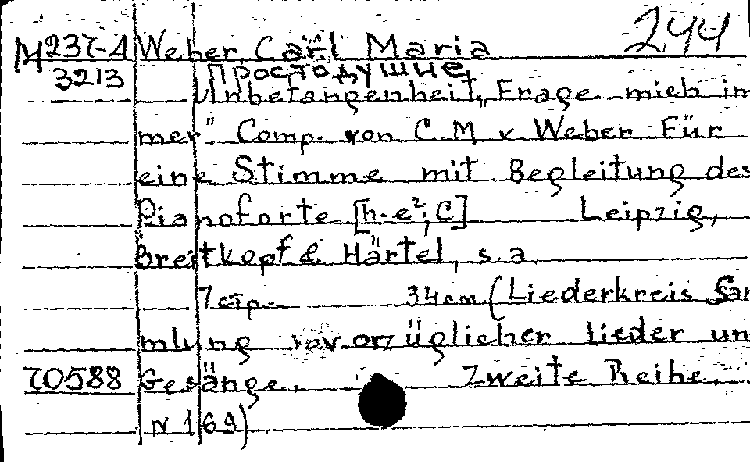 244
М237-4 Weber Carl Maria
3213 Простодушие
Unbefangenheit, Frage mich im
mer" Comp. von C.M v Weber Für
eine Stimme mit Begleitung des
Pianoforte [h-e²; C] Leipzig,
Breitkopf & Härtel, s.a
7 стр. 34 cm (Liederkreis Sam
mlung vorzüglicher Lieder un
70588 Gesänge. Zweite Reihe.
N 169)